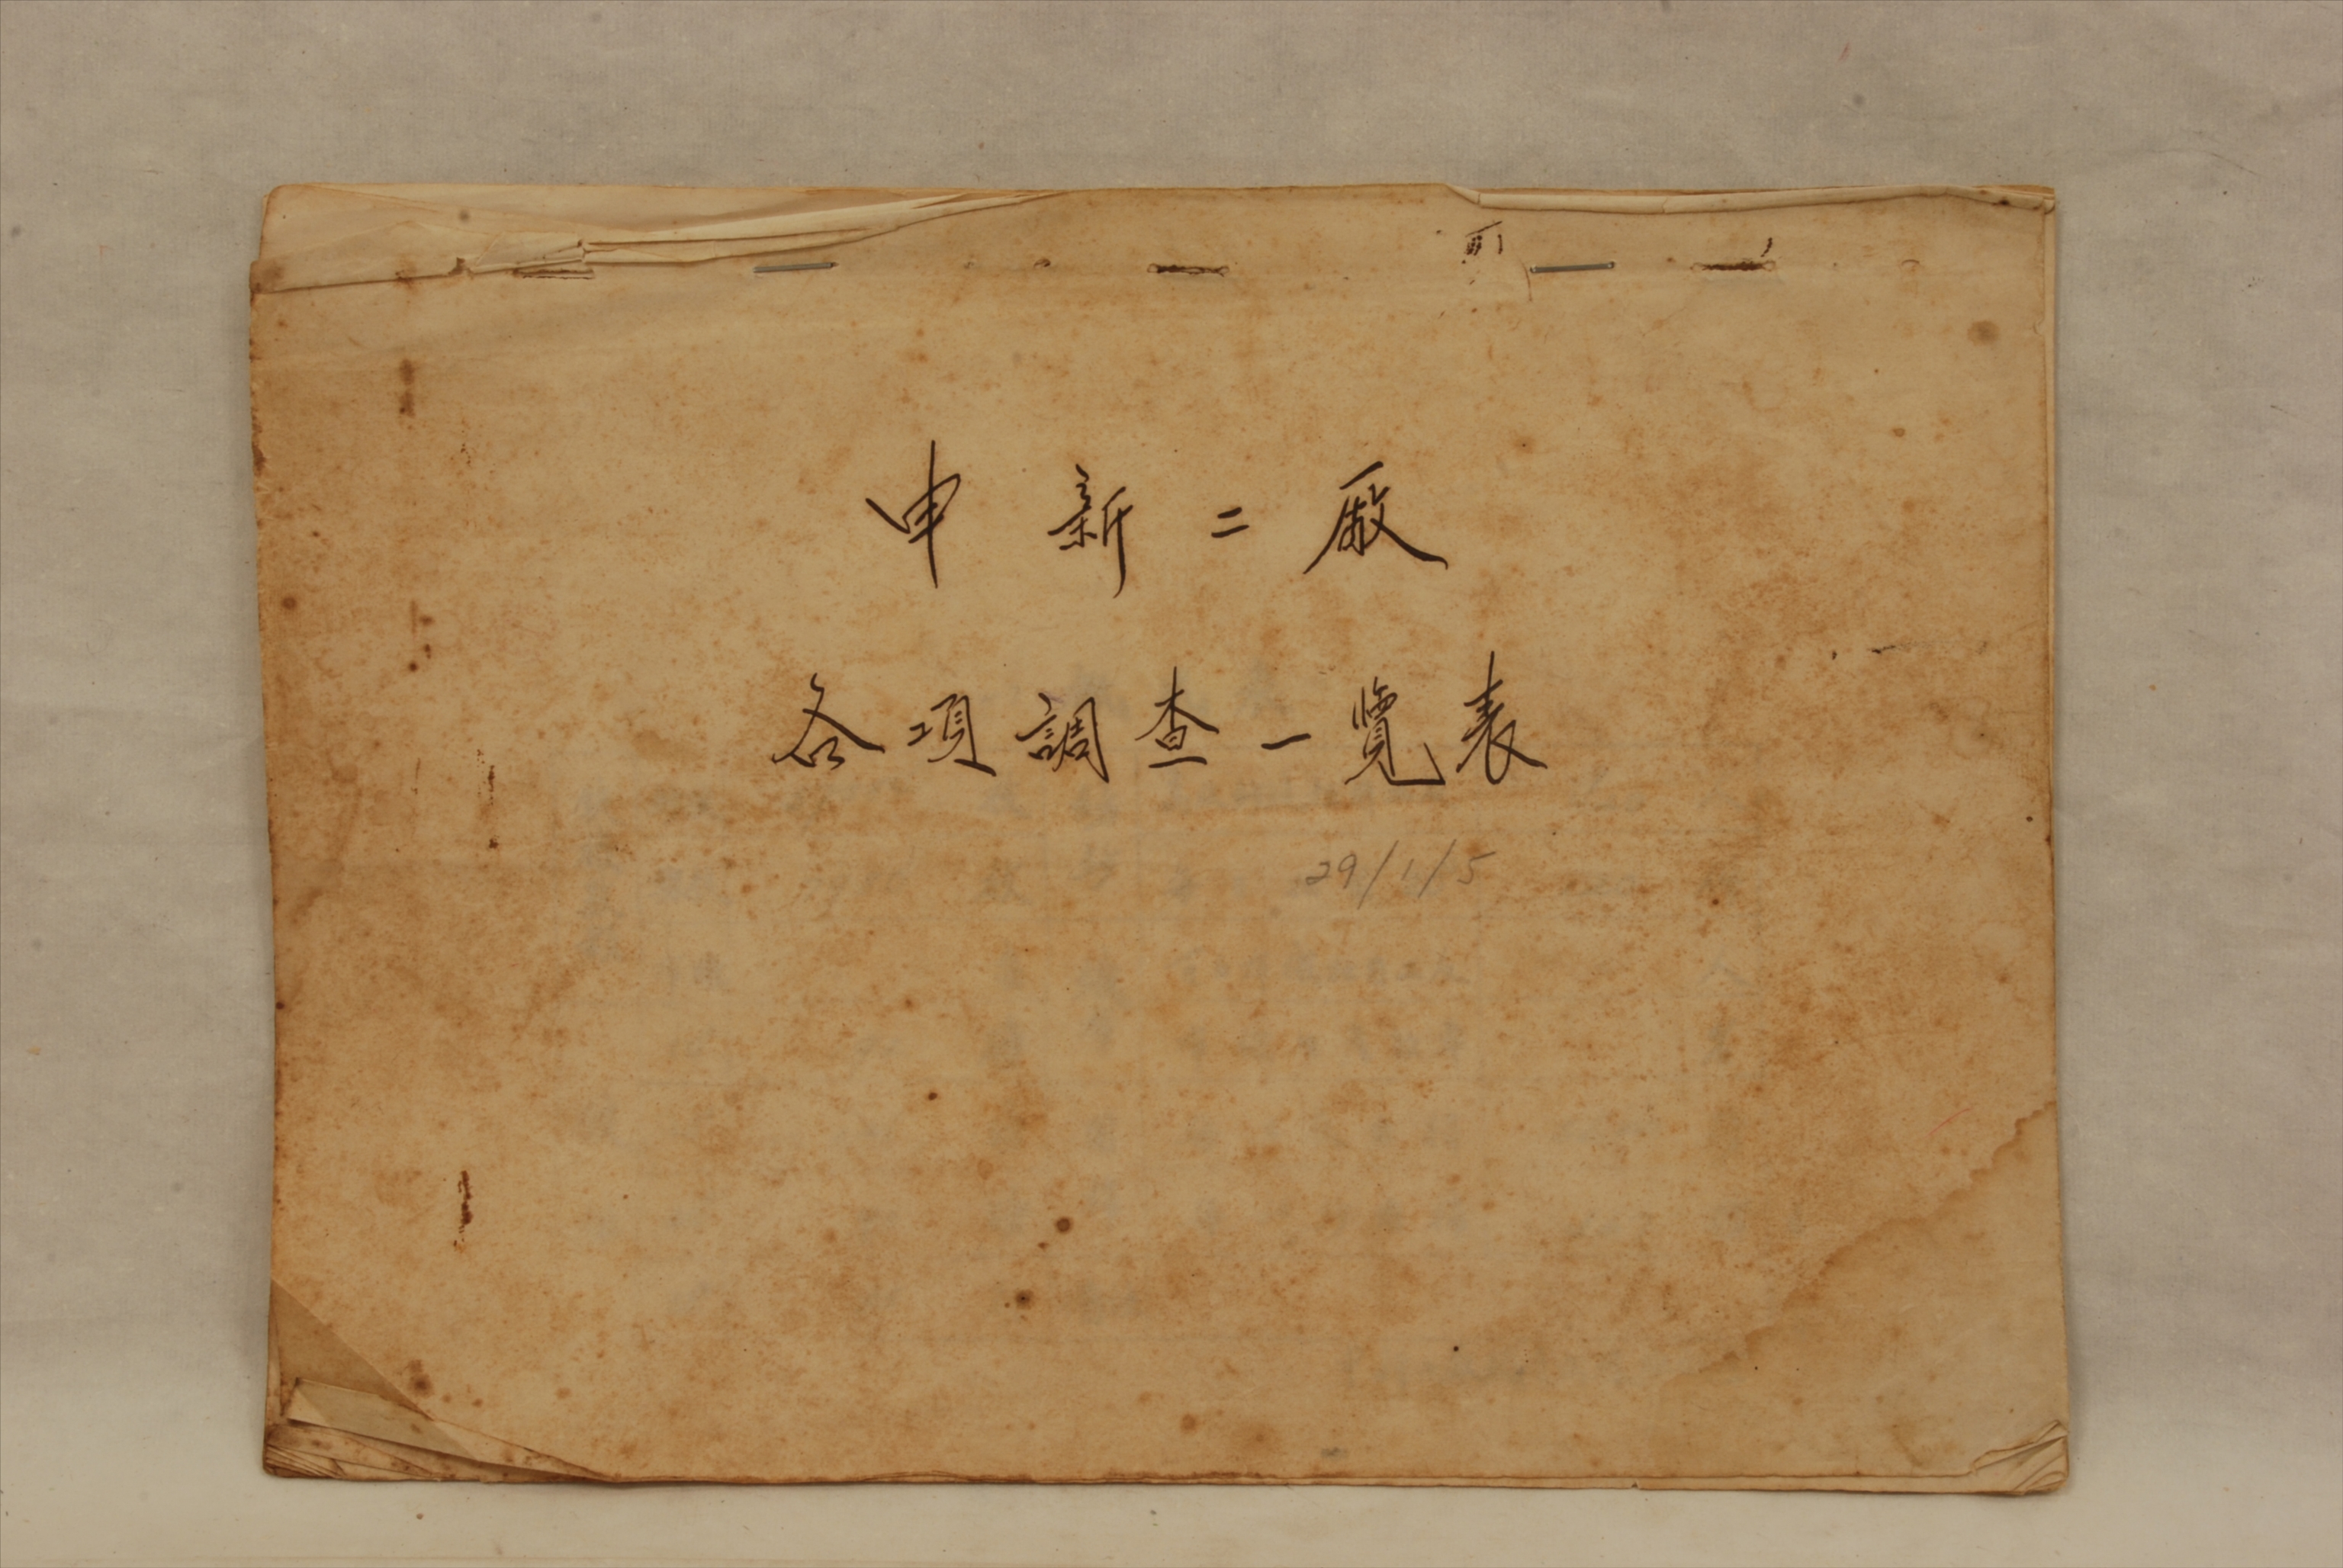 申新二厰
各項調查一覽表
29/1/5